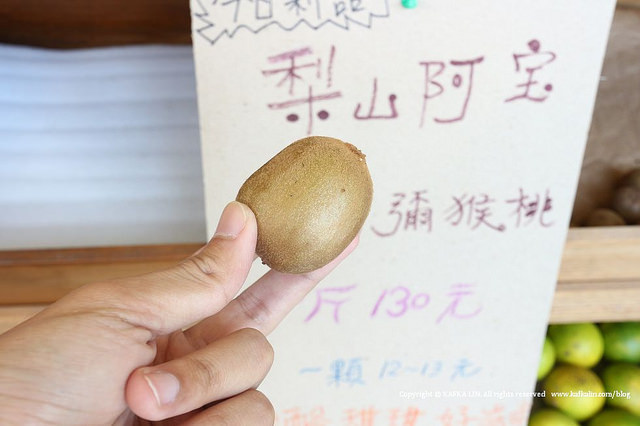 今日新品
梨山阿宝
彌猴桃
斤130元
一顆12-13元
酸甜甜好滋
Copyright © KAFKALIN All rights reserved www.kafkalin.com/blog